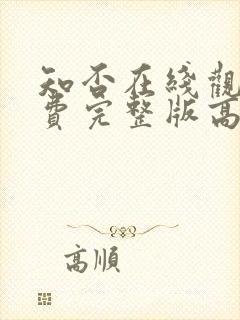 知否在綫觀
費完整版高
高順